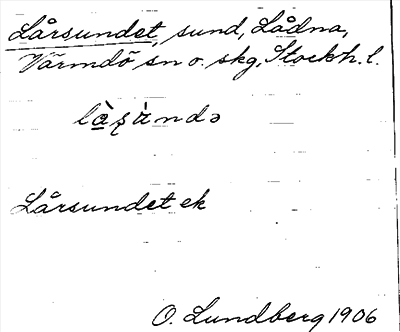 Lårsundet, sund, Lådna,
Värmdö sn o. skg, Stockh. l.
Lårsundet ek
O. Lundberg 1906